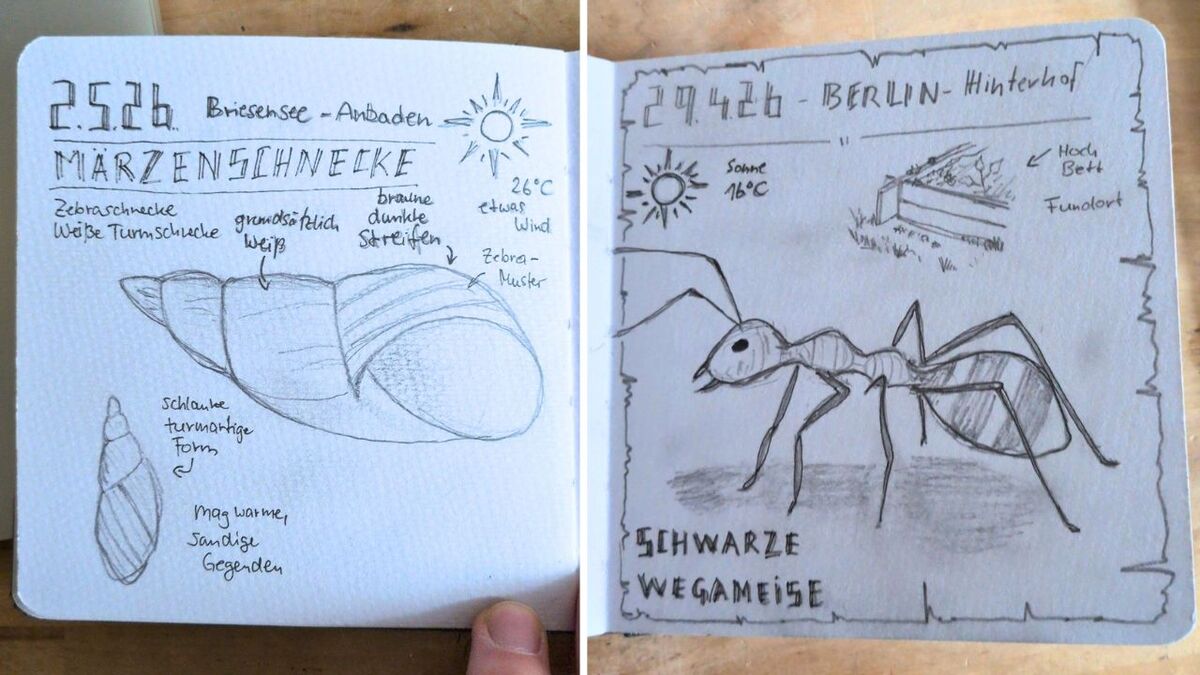 2.5.26. Briesensee - Anbaden
MÄRZENSCHNECKE
26°C
etwas
Wind
Zebraschnecke
Weiße Turmschnecke
grundsätzlich
weiß
braune
dunkle
Streifen
Zebra-
Muster
schlanke
turmartige
Form
Mag warme,
sandige
Gegenden
29.4.26 - BERLIN - Hinterhof
Sonne
16°C
Hoch
Bett
Fundort
SCHWARZE
WEGAMEISE